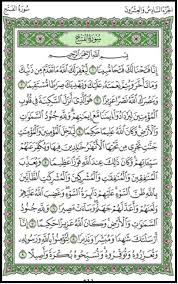 الجزء السادس والعشرون
سورة الفتح
سُورَةُ الفَتْحِ
بِسْمِ ٱللَّهِ ٱلرَّحْمَٰنِ ٱلرَّحِيمِ
إِنَّا فَتَحْنَا لَكَ فَتْحًا مُّبِينًا ١ لِّيَغْفِرَ لَكَ ٱللَّهُ مَا تَقَدَّمَ مِن ذَنۢبِكَ
وَمَا تَأَخَّرَ وَيُتِمَّ نِعْمَتَهُۥ عَلَيْكَ وَيَهْدِيَكَ صِرَٰطًا مُّسْتَقِيمًا ٢
وَيَنصُرَكَ ٱللَّهُ نَصْرًا عَزِيزًا ٣ هُوَ ٱلَّذِىٓ أَنزَلَ ٱلسَّكِينَةَ فِى قُلُوبِ
ٱلْمُؤْمِنِينَ لِيَزْدَادُوٓا۟ إِيمَٰنًا مَّعَ إِيمَٰنِهِمْ وَلِلَّهِ جُنُودُ ٱلسَّمَٰوَٰتِ
وَٱلْأَرْضِ وَكَانَ ٱللَّهُ عَلِيمًا حَكِيمًا ٤ لِّيُدْخِلَ ٱلْمُؤْمِنِينَ وَٱلْمُؤْمِنَٰتِ
جَنَّٰتٍ تَجْرِى مِن تَحْتِهَا ٱلْأَنْهَٰرُ خَٰلِدِينَ فِيهَا وَيُكَفِّرَ عَنْهُمْ
سَيِّـَٔاتِهِمْ وَكَانَ ذَٰلِكَ عِندَ ٱللَّهِ فَوْزًا عَظِيمًا ٥ وَيُعَذِّبَ
ٱلْمُنَٰفِقِينَ وَٱلْمُنَٰفِقَٰتِ وَٱلْمُشْرِكِينَ وَٱلْمُشْرِكَٰتِ ٱلظَّآنِّينَ
بِٱللَّهِ ظَنَّ ٱلسَّوْءِ عَلَيْهِمْ دَآئِرَةُ ٱلسَّوْءِ وَغَضِبَ ٱللَّهُ عَلَيْهِمْ
وَلَعَنَهُمْ وَأَعَدَّ لَهُمْ جَهَنَّمَ وَسَآءَتْ مَصِيرًا ٦ وَلِلَّهِ جُنُودُ
ٱلسَّمَٰوَٰتِ وَٱلْأَرْضِ وَكَانَ ٱللَّهُ عَزِيزًا حَكِيمًا ٧ إِنَّآ
أَرْسَلْنَٰكَ شَٰهِدًا وَمُبَشِّرًا وَنَذِيرًا ٨ لِّتُؤْمِنُوا۟ بِٱللَّهِ وَرَسُولِهِۦ
وَتُعَزِّرُوهُ وَتُوَقِّرُوهُ وَتُسَبِّحُوهُ بُكْرَةً وَأَصِيلًا ٩
٥١١